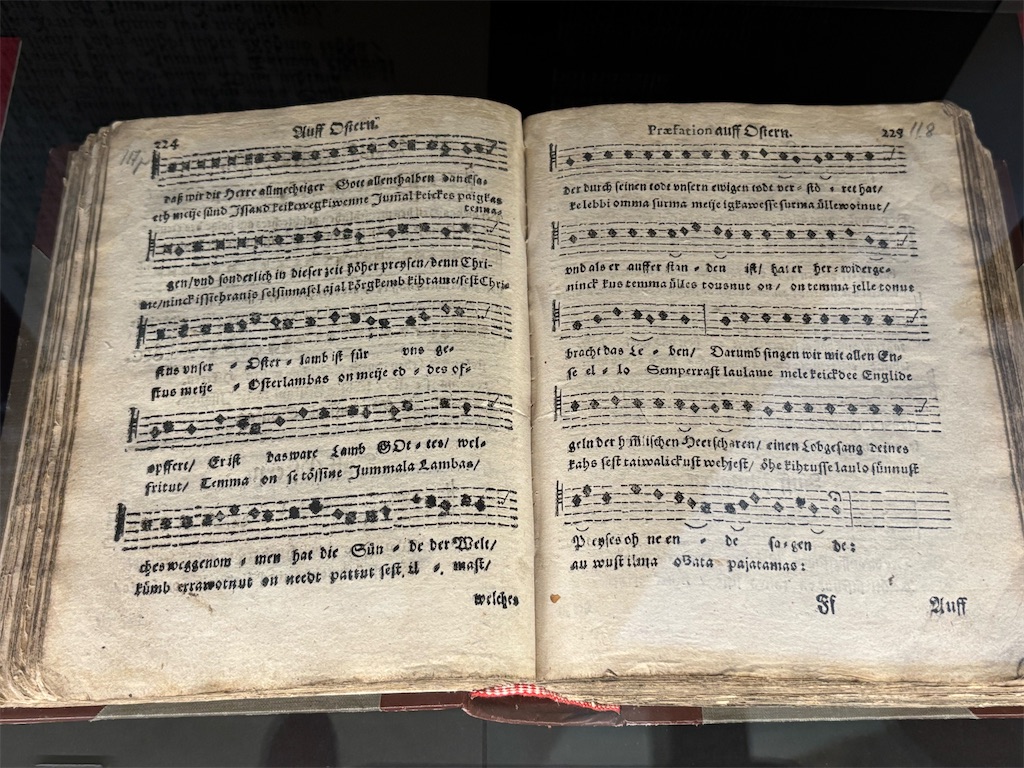 224
Auff Ostern.
daß wir dir Herre allmechtiger Gott allenthalben dancksa-
eth meije sünd Issand keikewegkiwenne Jum̃al keickes paigkas
tenna-
gen/vnd sonderlich in dieser zeit höher preysen/denn Chri-
me/ninck issiehranis selsinnasel ajal körgkemb kihtame/sest Chri-
stus vnser - Oster - lamb ist für vns ge-
stus meije - Osterlambas on meije ed - des of-
opffert/ Er ist das ware Lamb GOt - tes/ wel-
fritut/ Temma on se tössine Jummala Lambas/
ches weggenom - men hat die Sün - de der Welt/
kumb errawotnut on needt pattut sest il - mast/
welches
Præfation auff Ostern.
225 118
der durch seinen todt vnsern ewigen todt ver- stö - ret hat/
ke lebbi omma surma meije igkawesse surma üllewoinut/
vnd als er auffer stan - den ist/ hat er her-widerge-
ninck kus temma ülles tousnut on/ on temma jelle tonut
bracht das Le - ben/ Darumb singen wir mit allen En-
se el - lo Semperrast laulame mele keickdee Englide
geln der him̃lischen Heerscharen/ einen Lobgesang deines
kahs sest taiwalickust wehjest/ öhe kihtusse laulo sünnust
Preyses oh ne en - de sa-gen de:
au wust ilma otzata pajatamas:
Ff
Auff